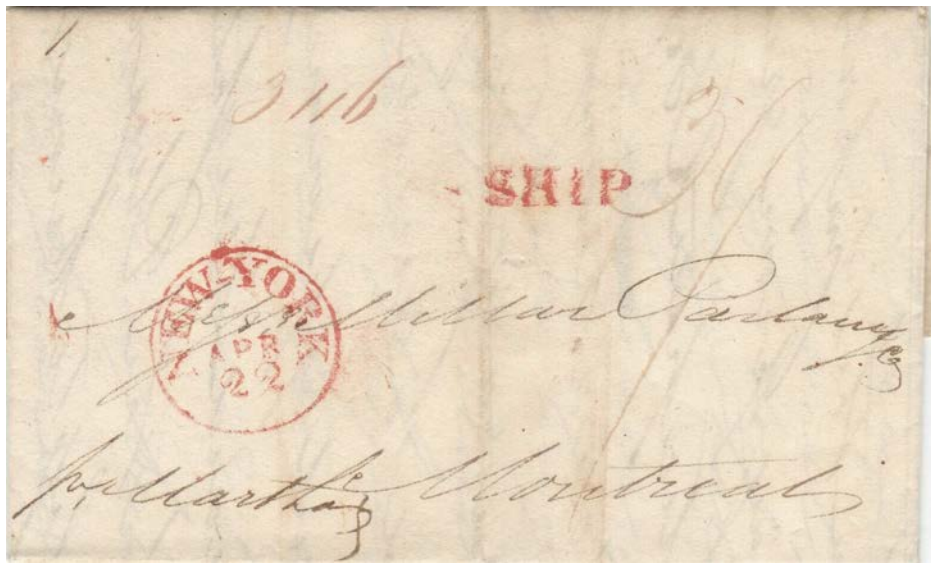 1.
3 116
36
SHIP
NEW-YORK
APR
22
Messrs Millar Parlane & Co
per Martha
Montreal